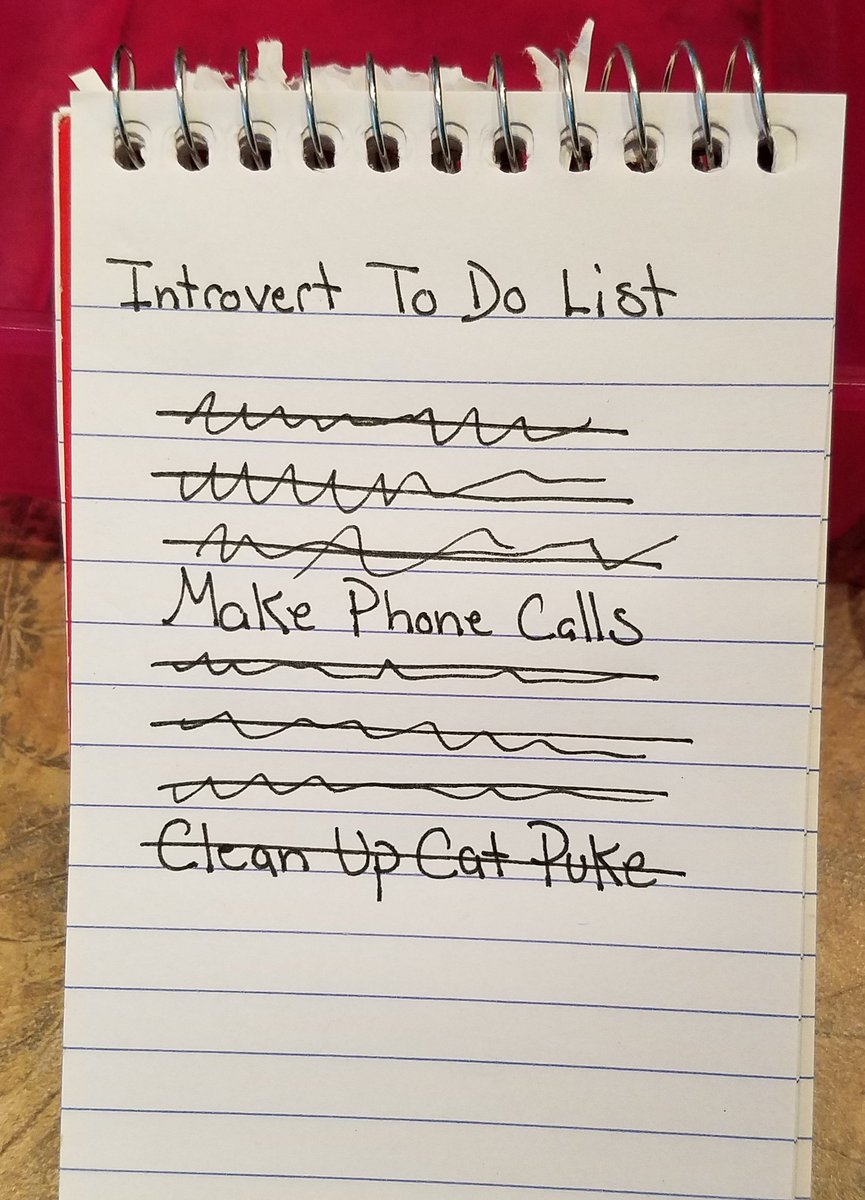 Introvert To Do List
Make Phone Calls
Clean Up Cat Puke